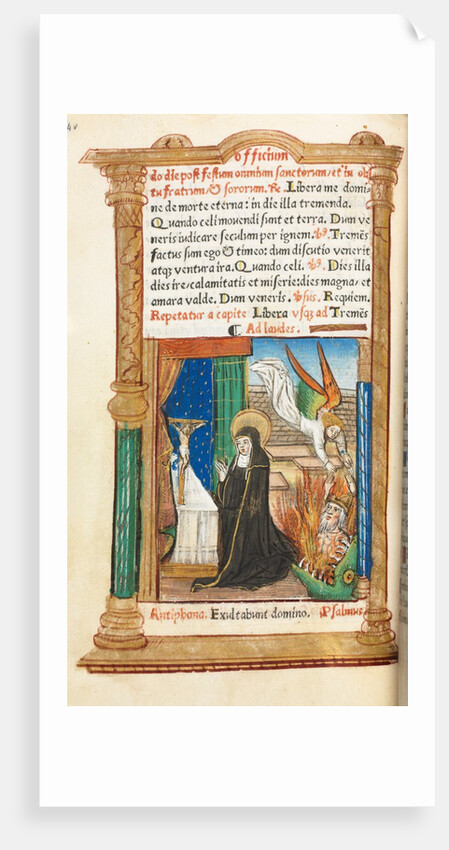 officium
do die post festum omnium sanctorum/et in obi
tu fratrum/& sororum. Re. Libera me domi
ne de morte eterna: in die illa tremenda.
Quando celi mouendi sunt et terra. Dum ve
neris iudicare seculum per ignem. Tremēs
factus sum ego & timeo: dum discutio venerit
atqȝ ventura ira. Quando celi. Dies illa
dies ire/calamitatis et miserie: dies magna/et
amara valde. Dum veneris. Requiem.
Repetatur a capite Libera vsqȝ ad Tremēs
¶ Ad laudes.
Antiphona. Exultabunt domino. Psalmus